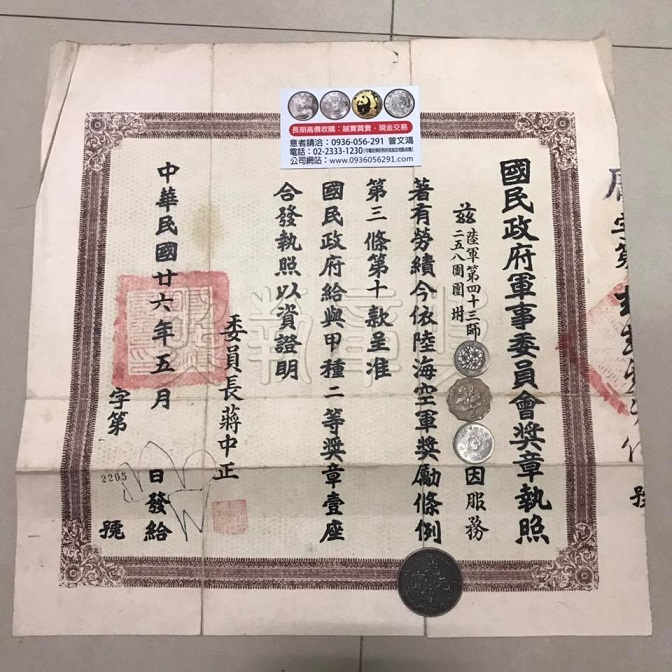 長期高價收購：誠實買賣，現金交易
意者請洽：0936-056-291 曾文鴻
電話：02-2333-1230
公司網站：www.0936056291.com
國民政府軍事委員會獎章執照
茲陸軍第四十三師
二五八團團附
因服務
著有勞績今依陸海空軍獎勵條例
第三條第十款呈准
國民政府給與甲種二等獎章壹座
合發執照以資證明
委員長蔣中正
中華民國廿六年五月 日發給
字第 2205 號
字第
號